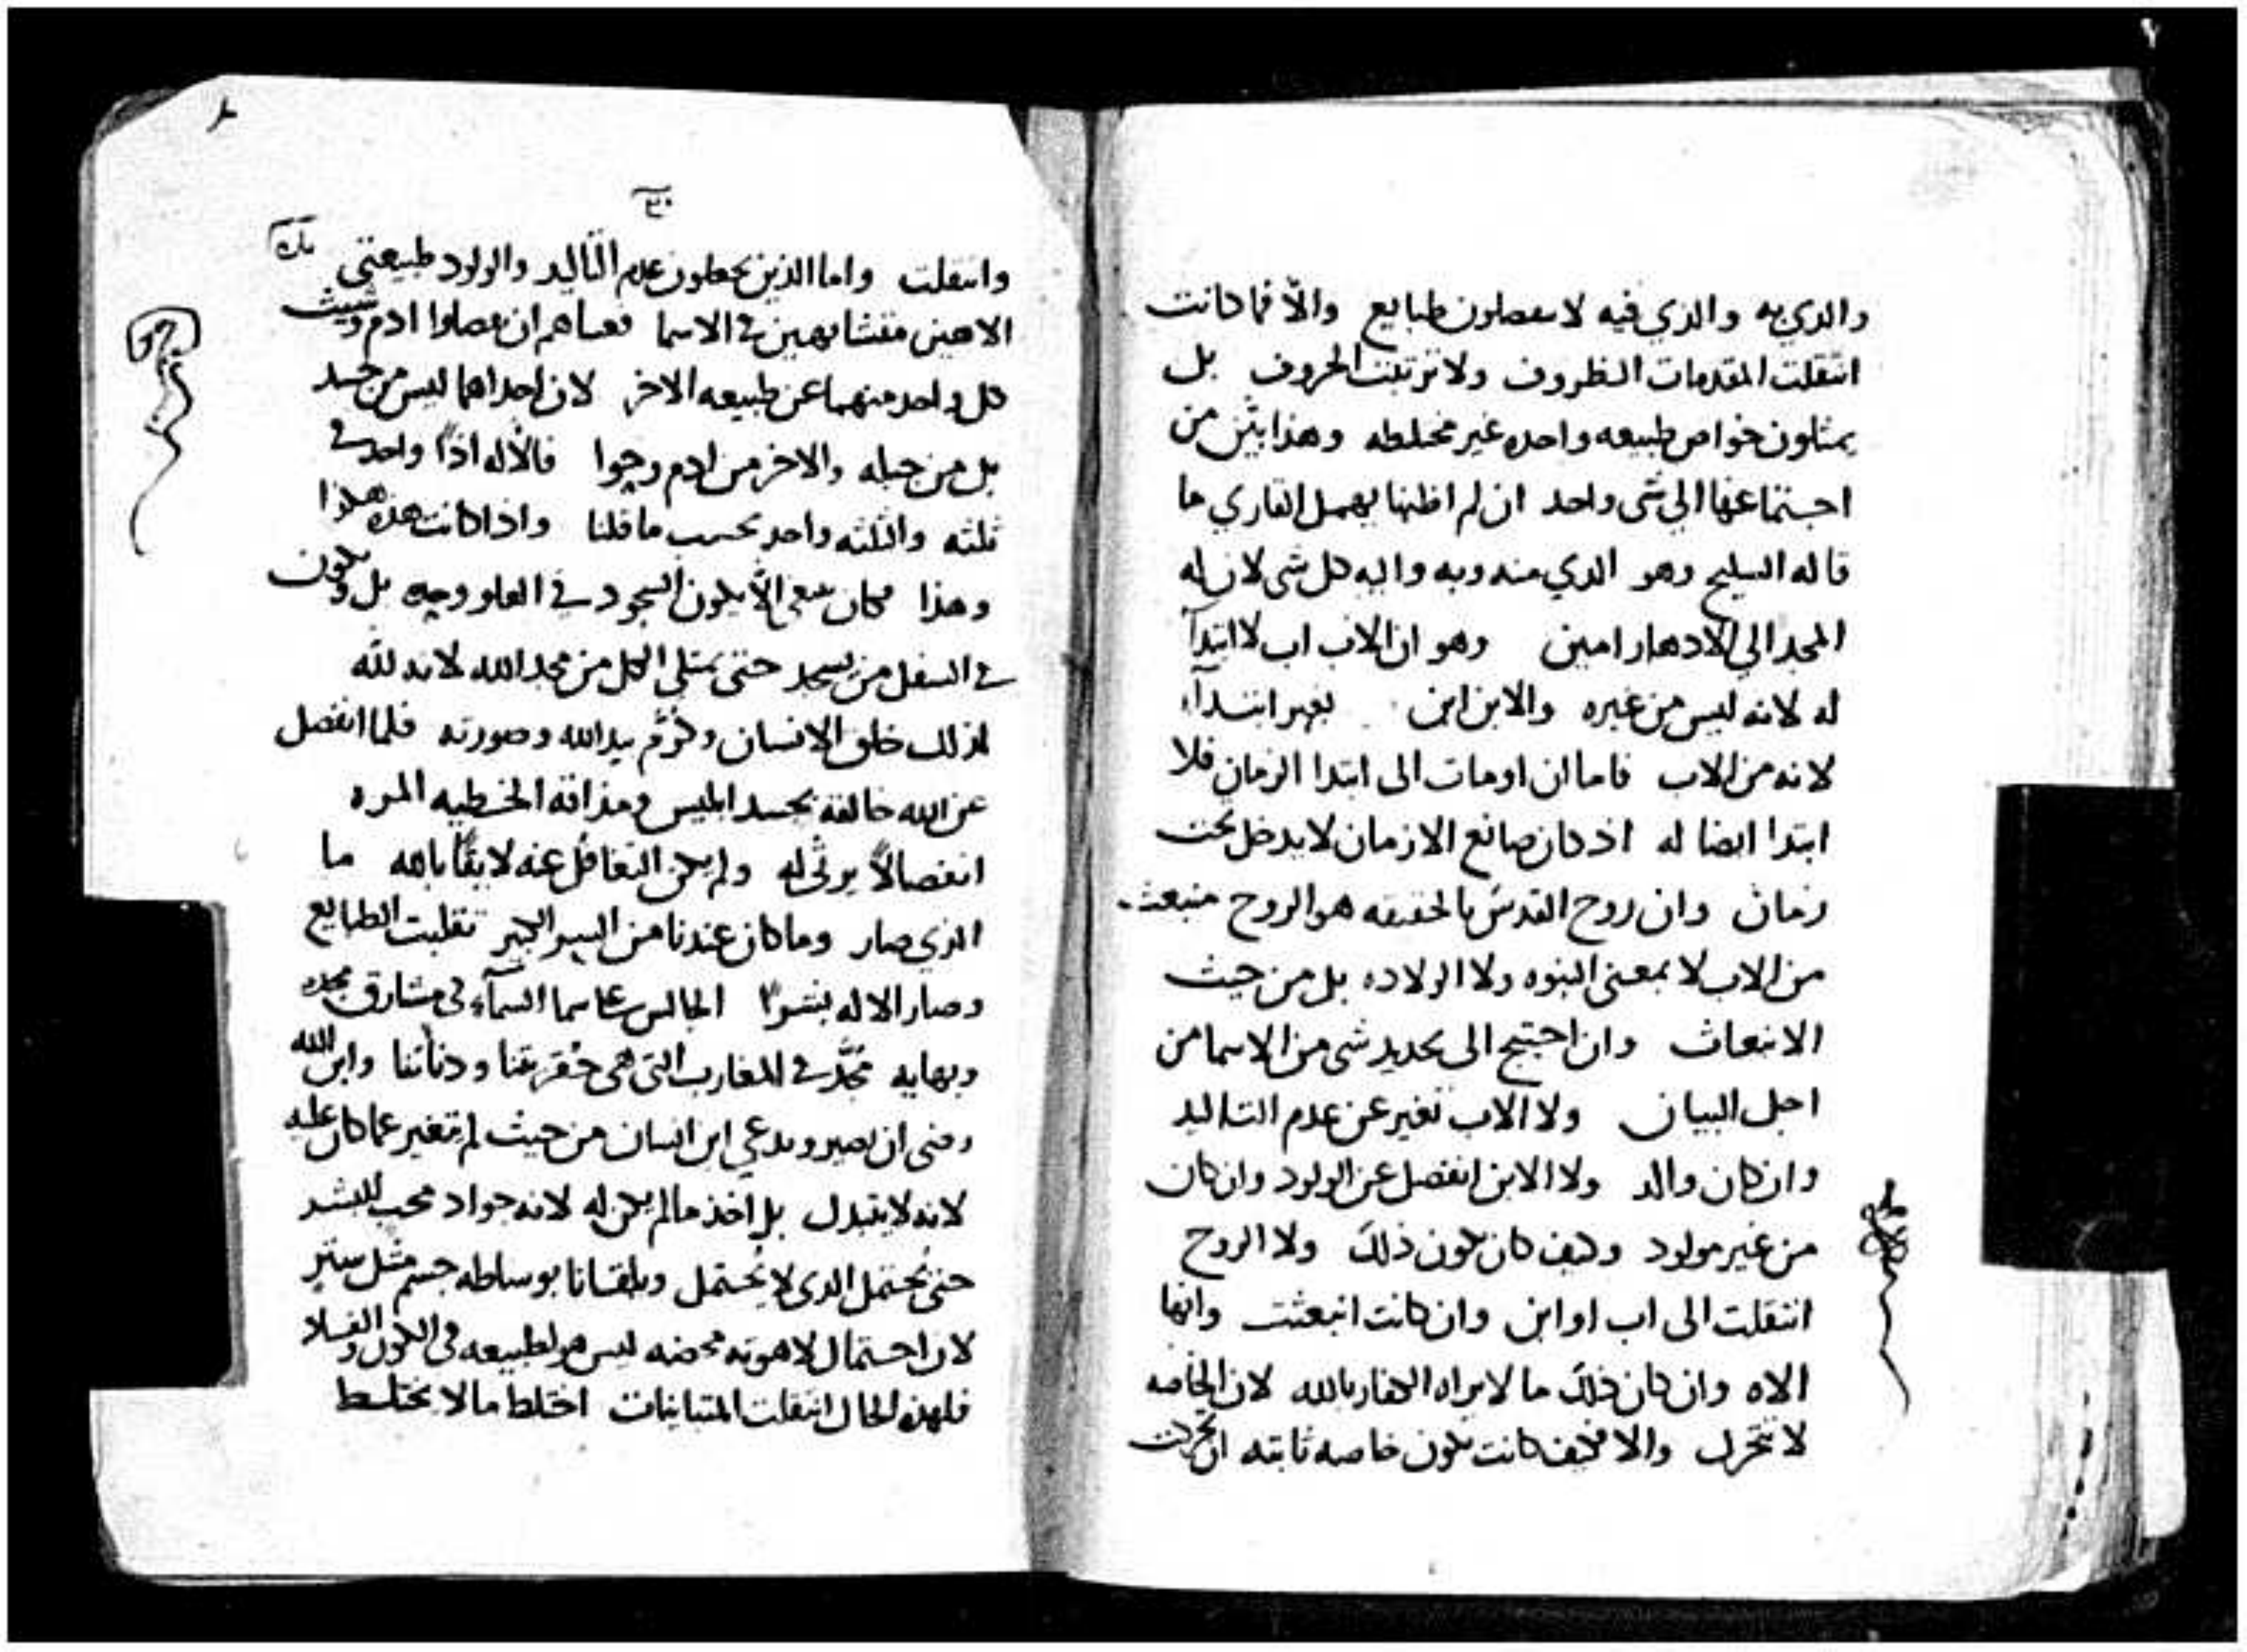 والذي به والذي فيه لا يفصلون طبايع والّا فما كانت
انتقلت المقدمات الظروف ولا ترتبت الحروف بل
يمثلون خواص طبيعه واحده غير مختلطه وهذا بيّن من
اجتماعها الى شى واحد ان لم اظنها يهمل القاري ما
قاله السليح وهو الدي منه وبه واليه كل شى لان له
المجد الي الادهار امين وهو ان الاب اب لا ابتدآ
له لانه ليس من غيره والابن ابن بغير ابتدآ
لانه من الاب فاما ان اومات الى ابتدا الزمان فلا
ابتدا ايضا له اذ كان صانع الازمان لا يدخل تحت
زمان وان روح القدس بالحقيقه هو الروح منبعث
من الاب لا بمعنى البنوه ولا الولاده بل من حيث
الانبعاث وان احتيج الى تحديد شى من الاسما من
اجل البيان ولا الاب تغير عن عدم التاليد
وان كان والد ولا الابن انفصل عن الولود وان كان
من غير مولود وكيف كان يكون ذلك ولا الروح
انتقلت الى اب او ابن وان كانت انبعثت وانها
الاه وان كان ذلك ما لا يراه الكفار بالله لان الخاصه
لا تتحرك والا فكيف كانت تكون خاصه ثابته ان تحركت
وانتقلت واما الذين يجعلون عدم التاليد والولود طبيعتي
الاهين متشابهين في الاسما فعساهم ان يفصلوا ادم وشيث
كل واحد منهما عن طبيعه الاخر لان احداهما ليس من جسد
بل من جبله والاخر من ادم وحوا فالاله اذًا واحد في
ثلثه والثلثه واحد بحسب ما قلنا واذا كانت هذه هكذا
وهذا فكان ينبغى الّا يكون السجود في العلو وحده بل ويكون
في السفل من يسجد حتى يمتلي الكل من مجد الله لانه لله
لذلك خلق الانسان وكرّم بيد الله وصورته فلما انفصل
عن الله خالقه بحسد ابليس ومذاقة الخطيه المره
انفصالاً يرثى له ولم يكن التغافل عنه لايقًا بالله ما
الذي صار وما كان عندنا من السر الكبير تقلبت الطبايع
وصار الاله بشرًا الجالس على سما السمآء في مشارق مجده
وبهايه مجّد في المغارب التى هى حقريتنا ودنأتنا وابن الله
رضى ان يصير ويدعى ابن انسان من حيث لم يتغير عما كان عليه
لانه لا يتبدل بل اخذ ما لم يكن له لانه جواد محب للبشر
حتى يُحتمل الدى لا يُحتمل ويلقانا بوساطه جسم مثل ستر
لان احتمال لاهوته محضه ليس هو لطبيعه في الكون والفساد
فلهذه الحال انتقلت المتباينات اختلط ما لا يختلط